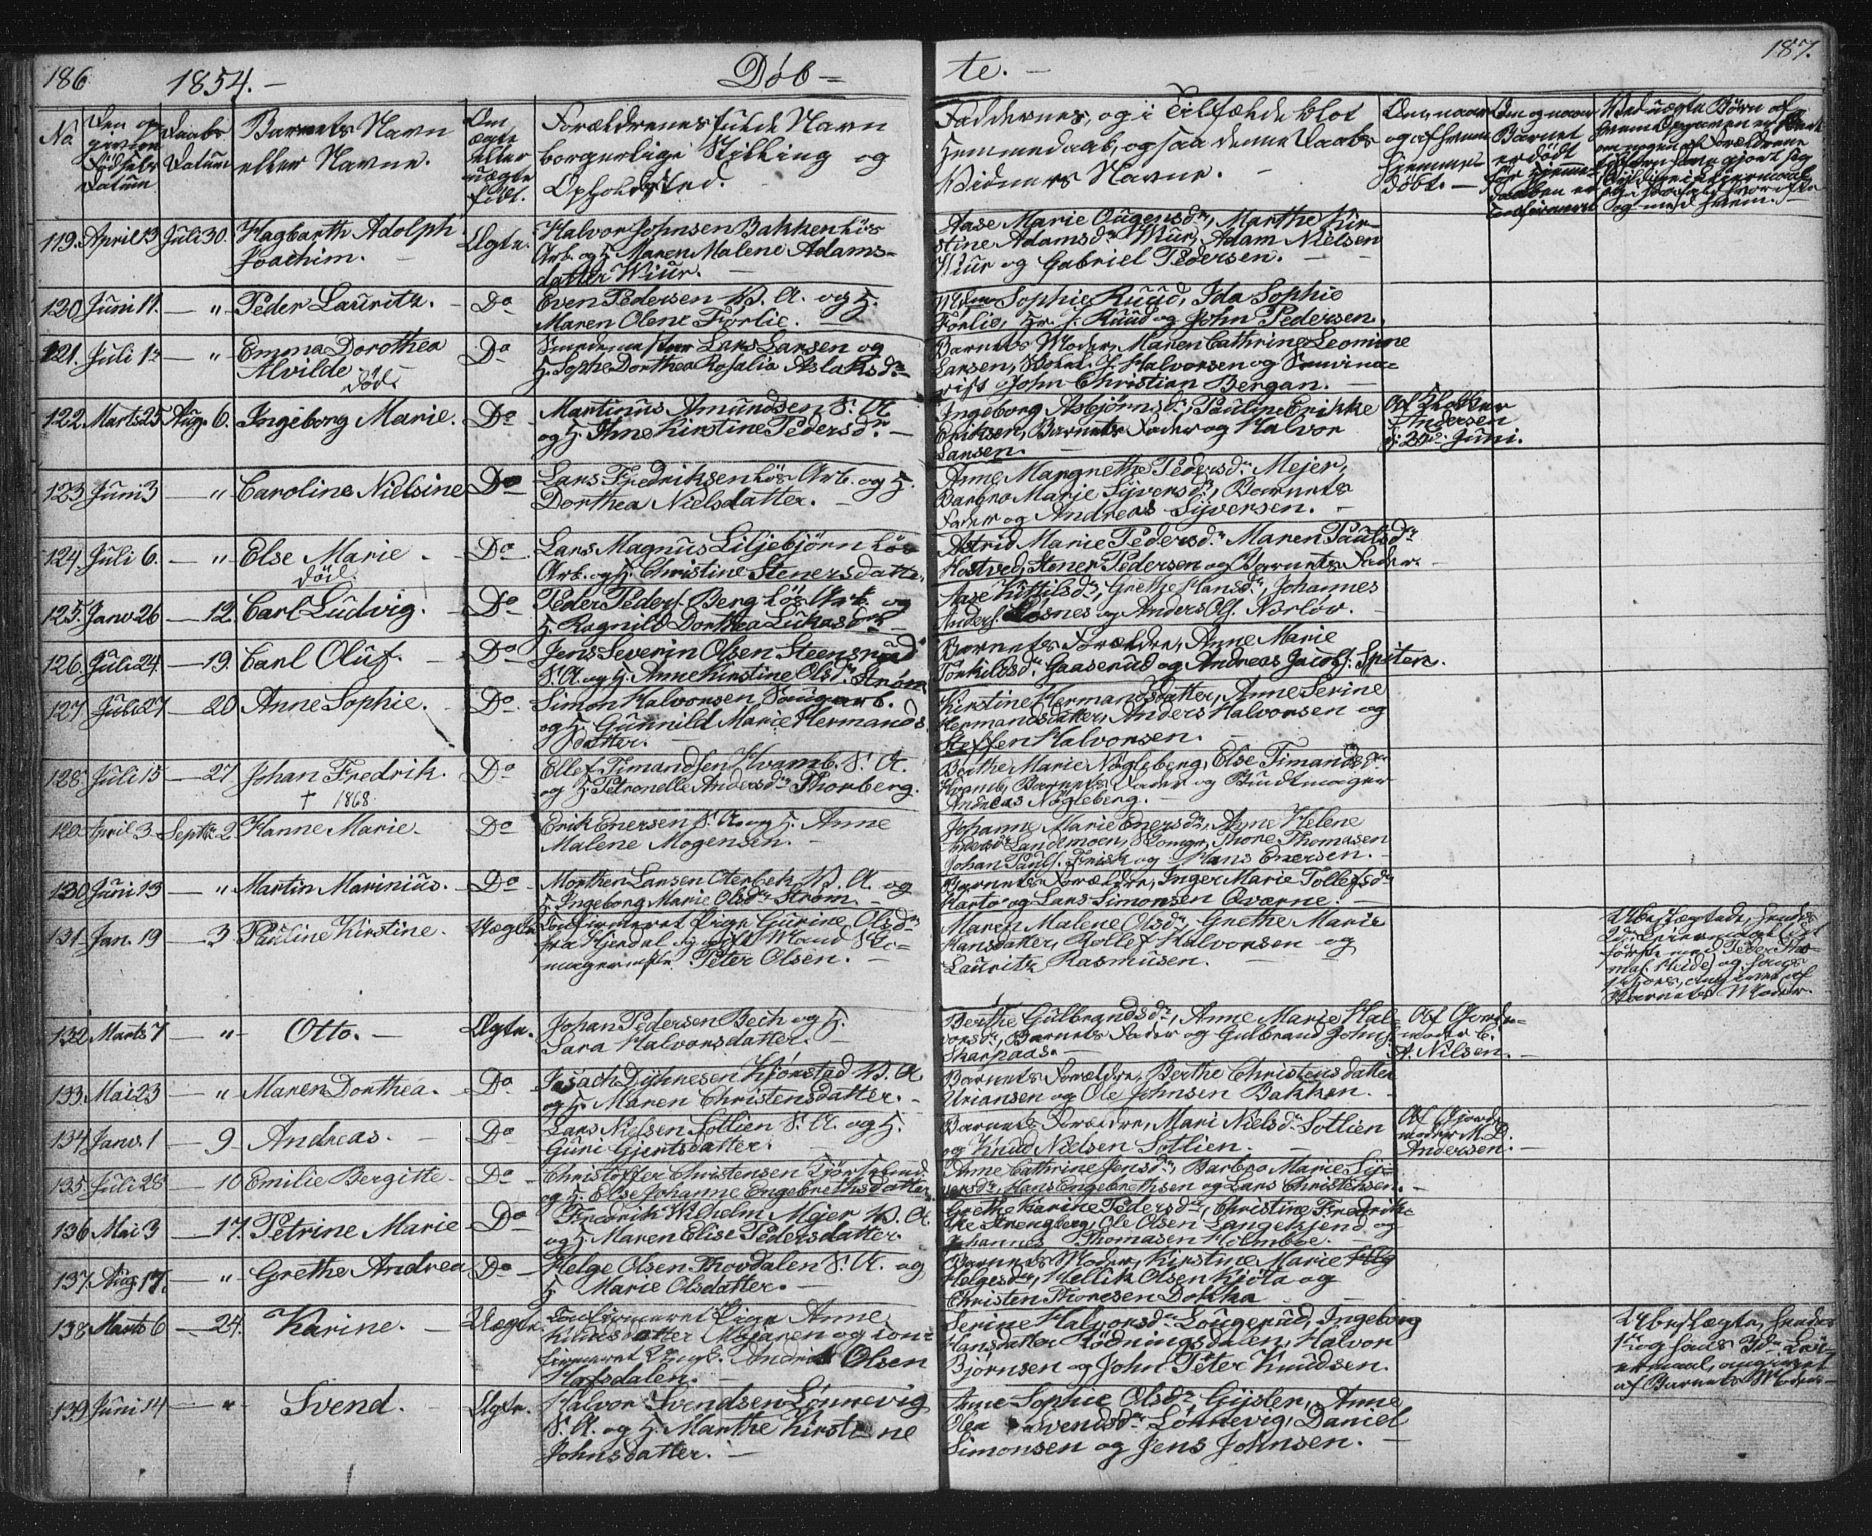 186
1854. -
Døb =
te. -
187.
No.
Barnets Navn
eller Navne.
Forældrenes fulde Navn
borgerlige Stilling og
Opholdsted.
Faddernes, og i Tilfælde blot
Hjemmedaab, ogsaa denne Daabs
Vidners Navne.
119. April 13 Juli 30. Hagbarth Adolph
Joachim.
Ægte.
Halvor Johnsen Bakken løs
Arb. og H. Maren Malene Adams-
datter Wiur.
Aase Marie Ougensdr, Marthe Kir-
stine Adamsdr Wiur, Adam Nielsen
Wiur og Gabriel Pedersen.
120 Juni 11. — " Peder Lauritz. Do
Even Pedersen P. A. og H.
Maren Olene Forlie.
Sophie Ruud, Ida Sophie
Forlie, Hr. J. Ruud og John Pedersen.
121. Juli 1ste — " Emma Dorothea
Alvilde
død.
Do
Lars Larsen og
H. Sophe Dorthea Rosalia Aslaksdr
Barnets Moder, Maren Cathrine Leonine
Larsen, J. Halvorsen og Semina-
rist John Christian Bergan.
122. Marts 25 Aug. 6. Ingeborg Marie. Do
Martinus Amundsen S. A
og H. Ane Kirstine Pedersdr
Ingeborg Asbjørnsdr, Pauline Erikke
Eriksen, Barnets Fader og Halvor
Larsen.
Af Klokker
Andersen
d. 25de Juni.
123 Juni 3 — " Caroline Nielsine Do
Lars Fredriksen løs Arb. og H.
Dorthea Nielsdatter.
Anne Margrethe Pedersdr Mejer,
Barbro Marie Syversdr, Barnets
Fader og Andreas Syversen.
124. Juli 6. — " Else Marie
død.
Do
Lars Magnus Liljebjørn løs
Arb. og H. Christine Stenersdatter.
Astrid Marie Pedersdr Maren Paulsdr
Hostved, Stener Pedersen og Barnets Fader.
125. Janv 26 — 12. Carl Ludvig. Do
Peder Peders. Berg løs Arb. og
H. Ragnild Dorthea Lukasdr
Aase Kittilsdr, Grethe Hansdr, Johannes
Anders. Løsnes og Anders Ols. Norløv.
126. Juli 24. — 19. Carl Oluf. Do
Jens Severin Olsen Steensrud
S. A. og H. Anne Kirstine Olsdr Strøm
Barnets Forældre, Anne Marie
Torkildsdr Gaaserud og Andreas Jacobs. Spiten.
127 Juli 27 — 20 Anne Sophie. Do
Simon Halvorsen
og H. Gunnild Marie Hermands
datter.
Kirstine Hermandsdatter, Anne Serine
Hermandsdatter, Anders Halvorsen og
Steffen Halvorsen.
128. Juli 15 — 27 Johan Fredrik.
† 1868
Do
Ellef Timandsen Hvamb. S. A.
og H. Petronelle Andersdr Thorberg.
Berthe Marie Nøgleberg, Else Timandsdr
Hvamb, Barnets Fader og Bundtmager
Andreas Nøgleberg.
129. April 3 Septbr 2 Hanne Marie. Do
Erik Enersen S. A. og H. Anne
Malene Mogensen.
Johanne Marie Enersdr, Anne Helene
Landmoen, Skomgr. Thore Thomasen
Johan Pauls. Frisk og Hans Enersen.
130 Juni 13 — " Martin Marinius. Do
Morthen Larsen Oterbek P. A. og
H. Ingeborg Marie Olsdr Strøm.
Barnets Forældre, Inger Marie Tollefsdr
Hartø og Lars Simonsen Qværne.
131. Jan. 19 — 3 Pauline Kirstine. Uægte
Confirmeret Pige Gurine Olsdr
fra Hjerdal og gift Mand Sko-
magermstr Peter Olsen.
Maren Malene Olsdr, Grethe Marie
Hansdatter, Rollef Halvorsen og
Lauritz Rasmusen.
Ubesløgtede, hendes
2det Leiermaal (det
første med Peder Tho-
mas. Heide) og hans
1ste Hors, angivet af
Barnets Moder.
132 Marts 7 — " Otto. Ægte.
Johan Pedersen Bech og H.
Sara Halvorsdatter.
Berthe Gulbrandsdr, Anne Marie Hal-
vorsdr, Barnets Fader og Gulbrand Johns.
Skarpaas.
Af Gjorde-
moder C.
A. Nilsen.
133. Mai 23 — " Maren Dorthea. Do
Isach Dyhnesen Kjørstad P. A
og H. Maren Christensdatter.
Barnets Forældre, Berthe Christensdatter
Uriansen og Ole Johnsen Bakken.
134 Janv. 1 — 9 Andreas. Do
Lars Nielsen Sotlien S. A. og H.
Guri Gjertsdatter.
Barnets Forældre, Mari Nielsdr Sotlien
og Knud Nielsen Sotlien.
Af Gjorde-
moder M. D.
Andersen.
135 Juli 28 — 10 Emilie Bergitte Do
Christoffer Christensen
og H. Else Johanne Engebrethsdatter
Anne Cathrine Jensdr, Barbro Marie Sy-
versdr, Hans Engebrethsen og Lars Christensen.
136 Mai 3 — 17. Petrine Marie Do
Fredrik Wilhelm Majer P. A
og H. Maren Elise Pedersdatter
Grethe Karine Pedersdr, Christine Fredrik-
ke Strengberg, Ole Olsen Langekjend og
Johannes Thomasen Holmboe.
137. Aug. 17. — " Grethe Andrea Do
Helge Olsen Thovdalen S. A. og
H. Marie Olsdatter.
Barnets Moder, Kirstine Marie Helg
Helgesdr, Kjellik Olsen Kjøla og
Christen Thoresen Dokka
138 Marts 6 — 24. Karine. Uægte
Confirmeret Pige Anne
Knudsdatter Mojaren og con-
firmeret Ungk. Andreas Olsen
Hofsdalen.
Serine Halvorsdr Lougerud, Ingeborg
Hansdatter Rødningsdalen, Halvor
Bjørnsen og John Peter Knudsen.
Ubesløgte, hendes
1ste og hans 3die Lei-
ermaal, angivet
af Barnets Moder.
139 Juni 14 — " Svend. Ægte.
Halvor Svendsen Lønnevig
S. A. og H. Marthe Kirstine
Johnsdatter.
Anne Sophie Olsdr Gysler, Anne
Olea Svendsdr Lønnevig, Daniel
Simonsen og Jens Johnsen.